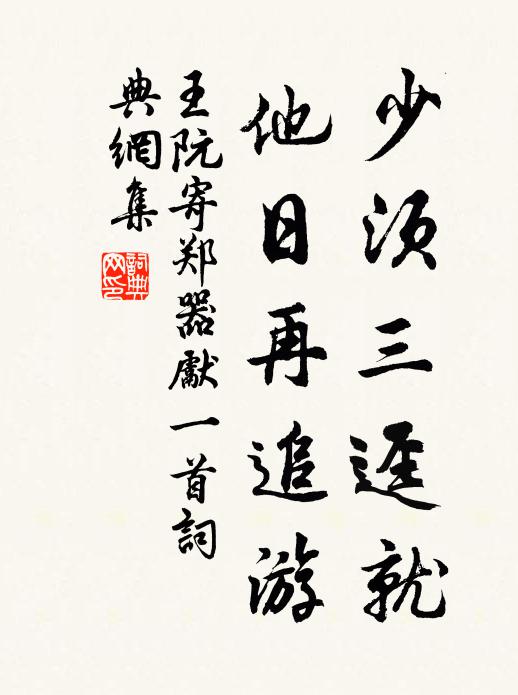 少須三逕就
他日再追游
王阮寄郑器獻一首詞
典網集
詞典网印